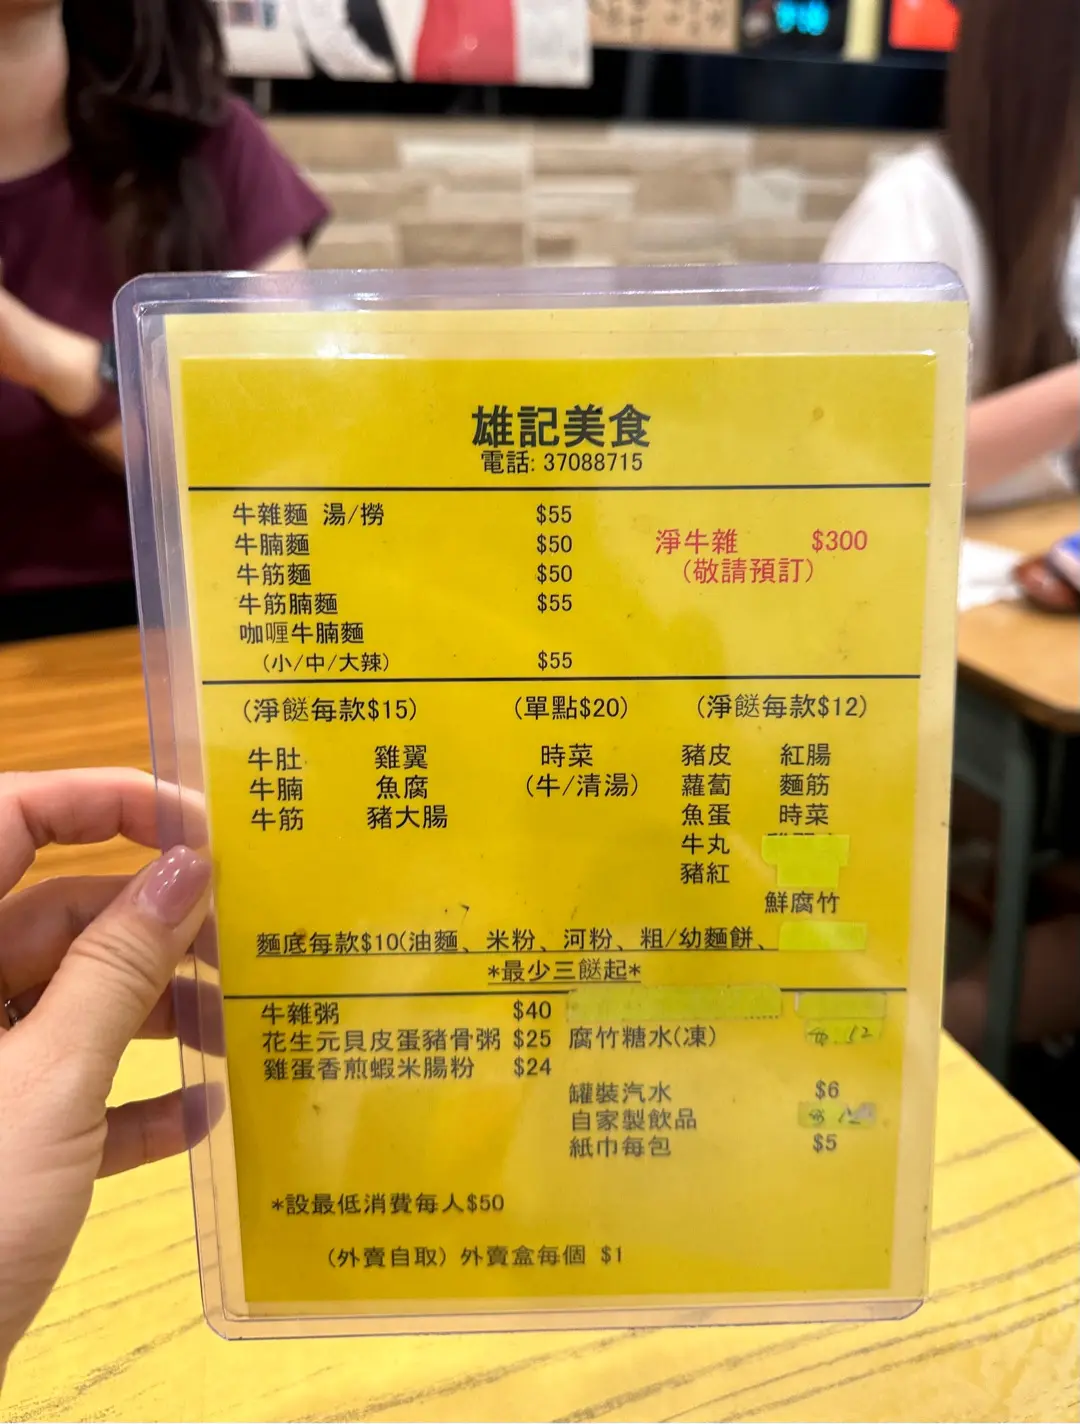 雄記美食
電話: 37088715
牛雜麵 湯/撈 $55
牛腩麵 $50
牛筋麵 $50
牛筋腩麵 $55
咖喱牛腩麵
(小/中/大辣) $55
淨牛雜 $300
(敬請預訂)
(淨餸每款$15) (單點$20) (淨餸每款$12)
牛肚 雞翼 時菜 豬皮 紅腸
牛腩 魚腐 (牛/清湯) 蘿蔔 麵筋
牛筋 豬大腸 魚蛋 時菜
牛丸
豬紅
鮮腐竹
麵底每款$10(油麵、米粉、河粉、粗/幼麵餅、
*最少三餸起*
牛雜粥 $40
花生元貝皮蛋豬骨粥 $25 腐竹糖水(凍) $12
雞蛋香煎蝦米腸粉 $24
罐裝汽水 $6
自家製飲品
紙巾每包 $5
*設最低消費每人$50
(外賣自取) 外賣盒每個 $1